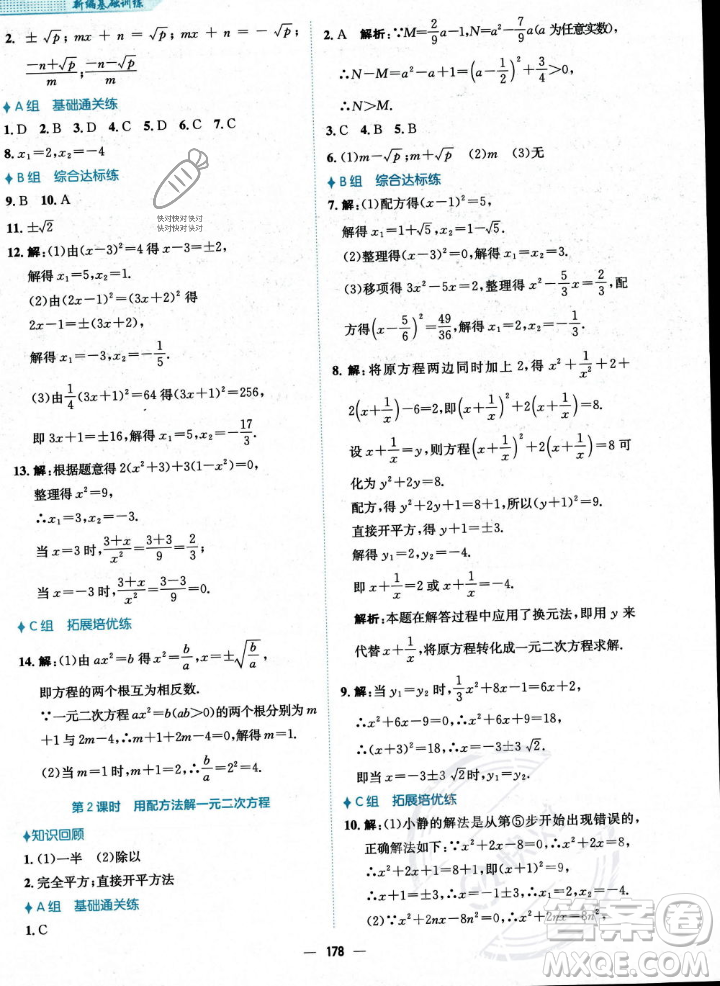 新编基础训练
2. ±√p; mx+n=√p; mx+n=-√p;
(-n+√p)/m; (-n-√p)/m
A组 基础通关练
1. D 2. B 3. D 4. B 5. D 6. C 7. C
8. x₁=2, x₂=-4
B组 综合达标练
9. B 10. A
快对快对快对
快对快对快对
11. ±√2
12. 解:(1)由(x-3)²=4得 x-3=±2,
解得 x₁=5, x₂=1.
(2)由(2x-1)²=(3x+2)²得
2x-1=±(3x+2),
解得 x₁=-3, x₂=-1/5.
(3)由1/4(3x+1)²=64得(3x+1)²=256,
即 3x+1=±16,解得 x₁=5, x₂=-17/3.
13. 解:根据题意得 2(x²+3)+3(1-x²)=0,
整理得 x²=9,
∴x₁=3, x₂=-3.
当 x=3时,(3+x)/x²=(3+3)/9=2/3;
当 x=-3时,(3+x)/x²=(3-3)/9=0.
C组 拓展培优练
14. 解:(1)由 ax²=b得 x²=b/a, x=±√(b/a),
即方程的两个根互为相反数.
∵一元二次方程 ax²=b(ab>0)的两个根分别为 m
+1与 2m-4,∴m+1+2m-4=0,∴m=1.
(2)当 m=1时,m+1=2,2m-4=-2,∴±√(b/a)=±2,
∴b/a=2²=4.
第2课时 用配方法解一元二次方程
知识回顾
1. (1)一半 (2)除以
2. 完全平方;直接开平方法
A组 基础通关练
1. C
2. A 解析:∵M=2/9a-1,N=a²-7/9a(a为任意实数),
∴N-M=a²-a+1=(a-1/2)²+3/4>0,
∴N>M.
3. C 4. A 5. B
6. (1)m-√p;m+√p (2)m (3)无
B组 综合达标练
7. 解:(1)配方得(x-1)²=5,
解得 x₁=1+√5, x₂=1-√5.
(2)整理得(x-3)²=0,解得 x₁=x₂=3.
(3)移项得 3x²-5x=2,整理得 x²-5/3x=2/3,配
方得(x-5/6)²=49/36,解得 x₁=2, x₂=-1/3.
8. 解:将原方程两边同时加上 2,得 x²+1/x²+2+
2(x+1/x)-6=2,即(x+1/x)²+2(x+1/x)=8.
设 x+1/x=y,则方程(x+1/x)²+2(x+1/x)=8可
化为 y²+2y=8.
配方得 y²+2y+1=8+1,所以(y+1)²=9.
直接开平方,得 y+1=±3.
解得 y₁=2, y₂=-4.
即 x+1/x=2或 x+1/x=-4.
解析:本题在解答过程中应用了换元法,即用 y来
代替 x+1/x,将原方程转化成一元二次方程求解.
9. 解:当 y₁=y₂时,1/3x²+8x-1=6x+2,
∴x²+6x-9=0,∴x²+6x+9=9+9,
∴(x+3)²=18,∴x=-3±3√2.
即当 x=-3±3√2时,y₁=y₂.
C组 拓展培优练
10. 解:(1)小静的解法是从第⑤步开始出现错误的.
正确解法如下:∵x²+2x=8,∴x²+2x+1=8+1,
∴x+1=±3,∴x=-1±3,∴x₁=2, x₂=-4.
(2)∵x²+2nx-8n²=0,∴x²+2nx=8n²,
178
答案圈